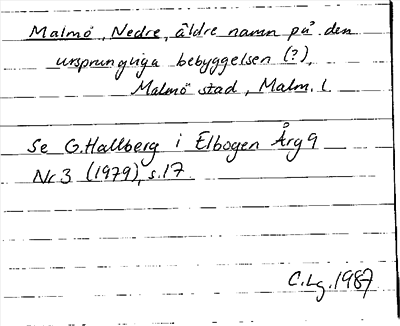 Malmö, Nedre, äldre namn på den
ursprungliga bebyggelsen (?),
Malmö stad, Malm. l.
Se G. Hallberg i Elbogen Årg 9
Nr 3 (1979), s. 17.
C. Lg. 1987